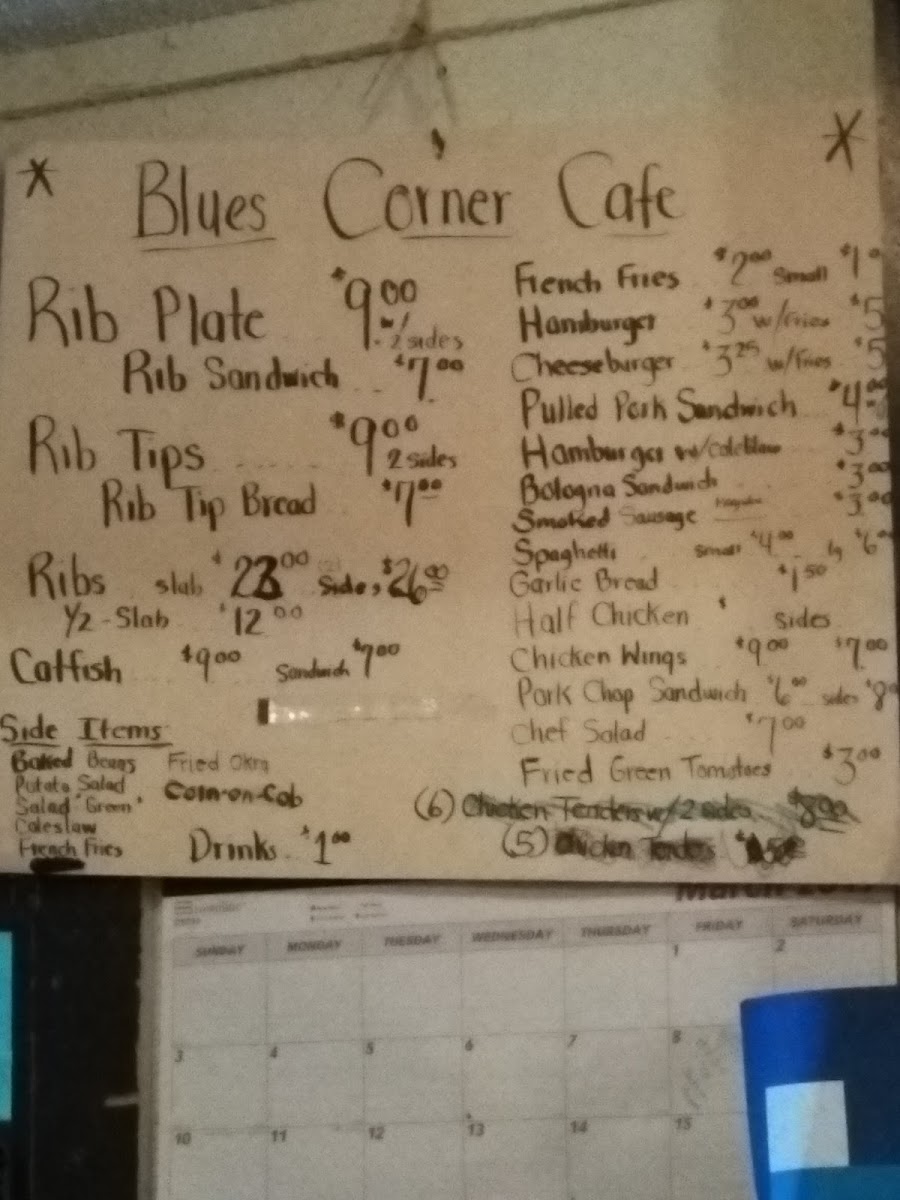 * Blues Corner Cafe *
Rib Plate $9.00 w/ 2 sides
Rib Sandwich $7.00
Rib Tips $9.00 2 sides
Rib Tip Bread $7.00
Ribs slab $23.00 Sides $26.00
1/2 - Slab $12.00
Catfish $9.00 Sandwich $7.00
Side Items
Baked Beans Fried Okra
Potato Salad Corn-on-Cob
Salad "Green"
Coleslaw
French Fries
Drinks $1.00
French Fries $2.00 Small $1
Hamburger $3.00 w/fries $5
Cheeseburger $3.25 w/fries $5
Pulled Pork Sandwich $4.00
Hamburger w/coleslaw $3.00
Bologna Sandwich $3.00
Smoked Sausage $3.00
Spaghetti small $4.00 lg $6
Garlic Bread $1.50
Half Chicken $ sides
Chicken Wings $9.00 $7.00
Pork Chop Sandwich $6.00 sides $8
Chef Salad $7.00
Fried Green Tomatoes $3.00
(6) Chicken Tenders w/ 2 sides
(5) Chicken Tenders
March
SUNDAY MONDAY TUESDAY WEDNESDAY THURSDAY FRIDAY SATURDAY
1 2
3 4 5 6 7 8
10 11 12 13 14 15